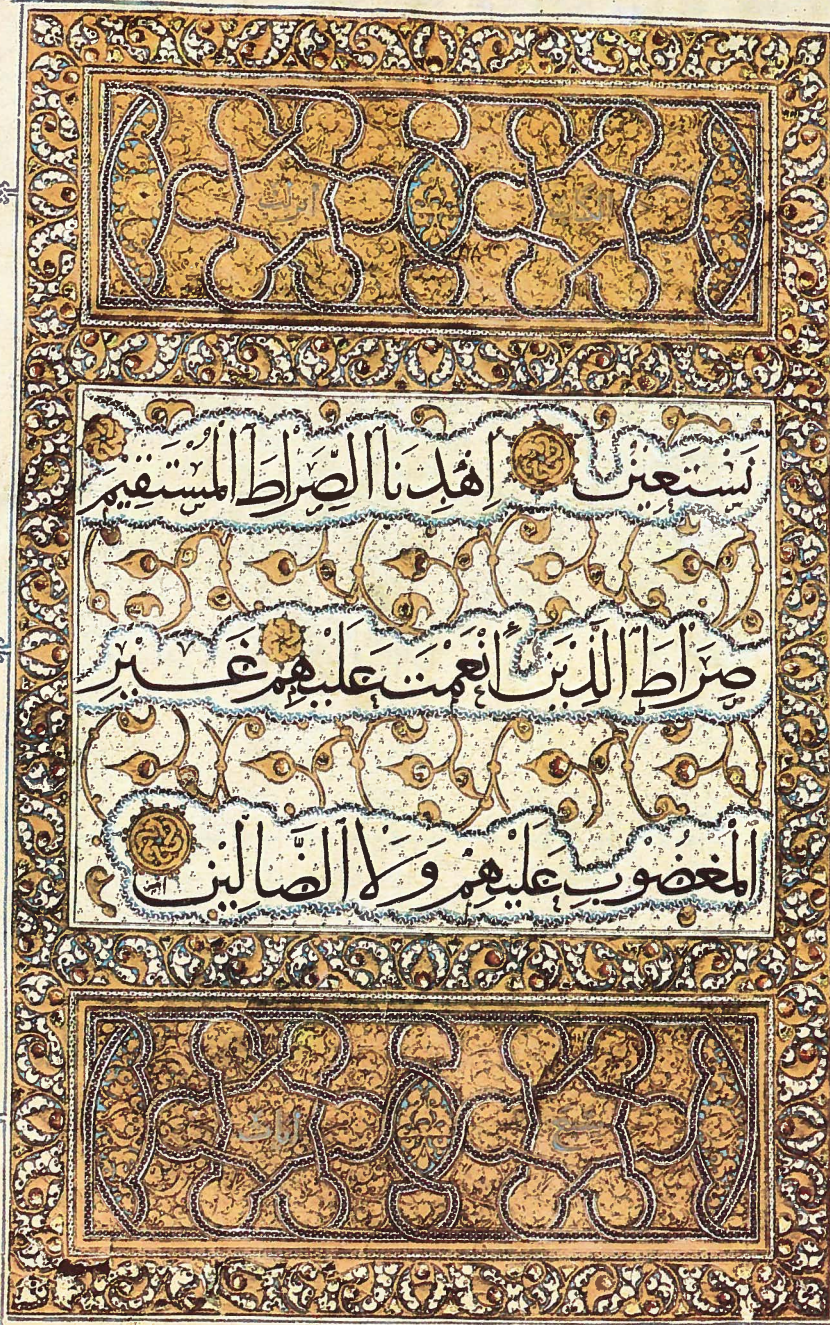 نَسْتَعِينُ اهْدِنَا الصِّرَاطَ الْمُسْتَقِيمَ
صِرَاطَ الَّذِينَ أَنْعَمْتَ عَلَيْهِمْ غَيْرِ
الْمَغْضُوبِ عَلَيْهِمْ وَلَا الضَّالِّينَ
سبع آيات